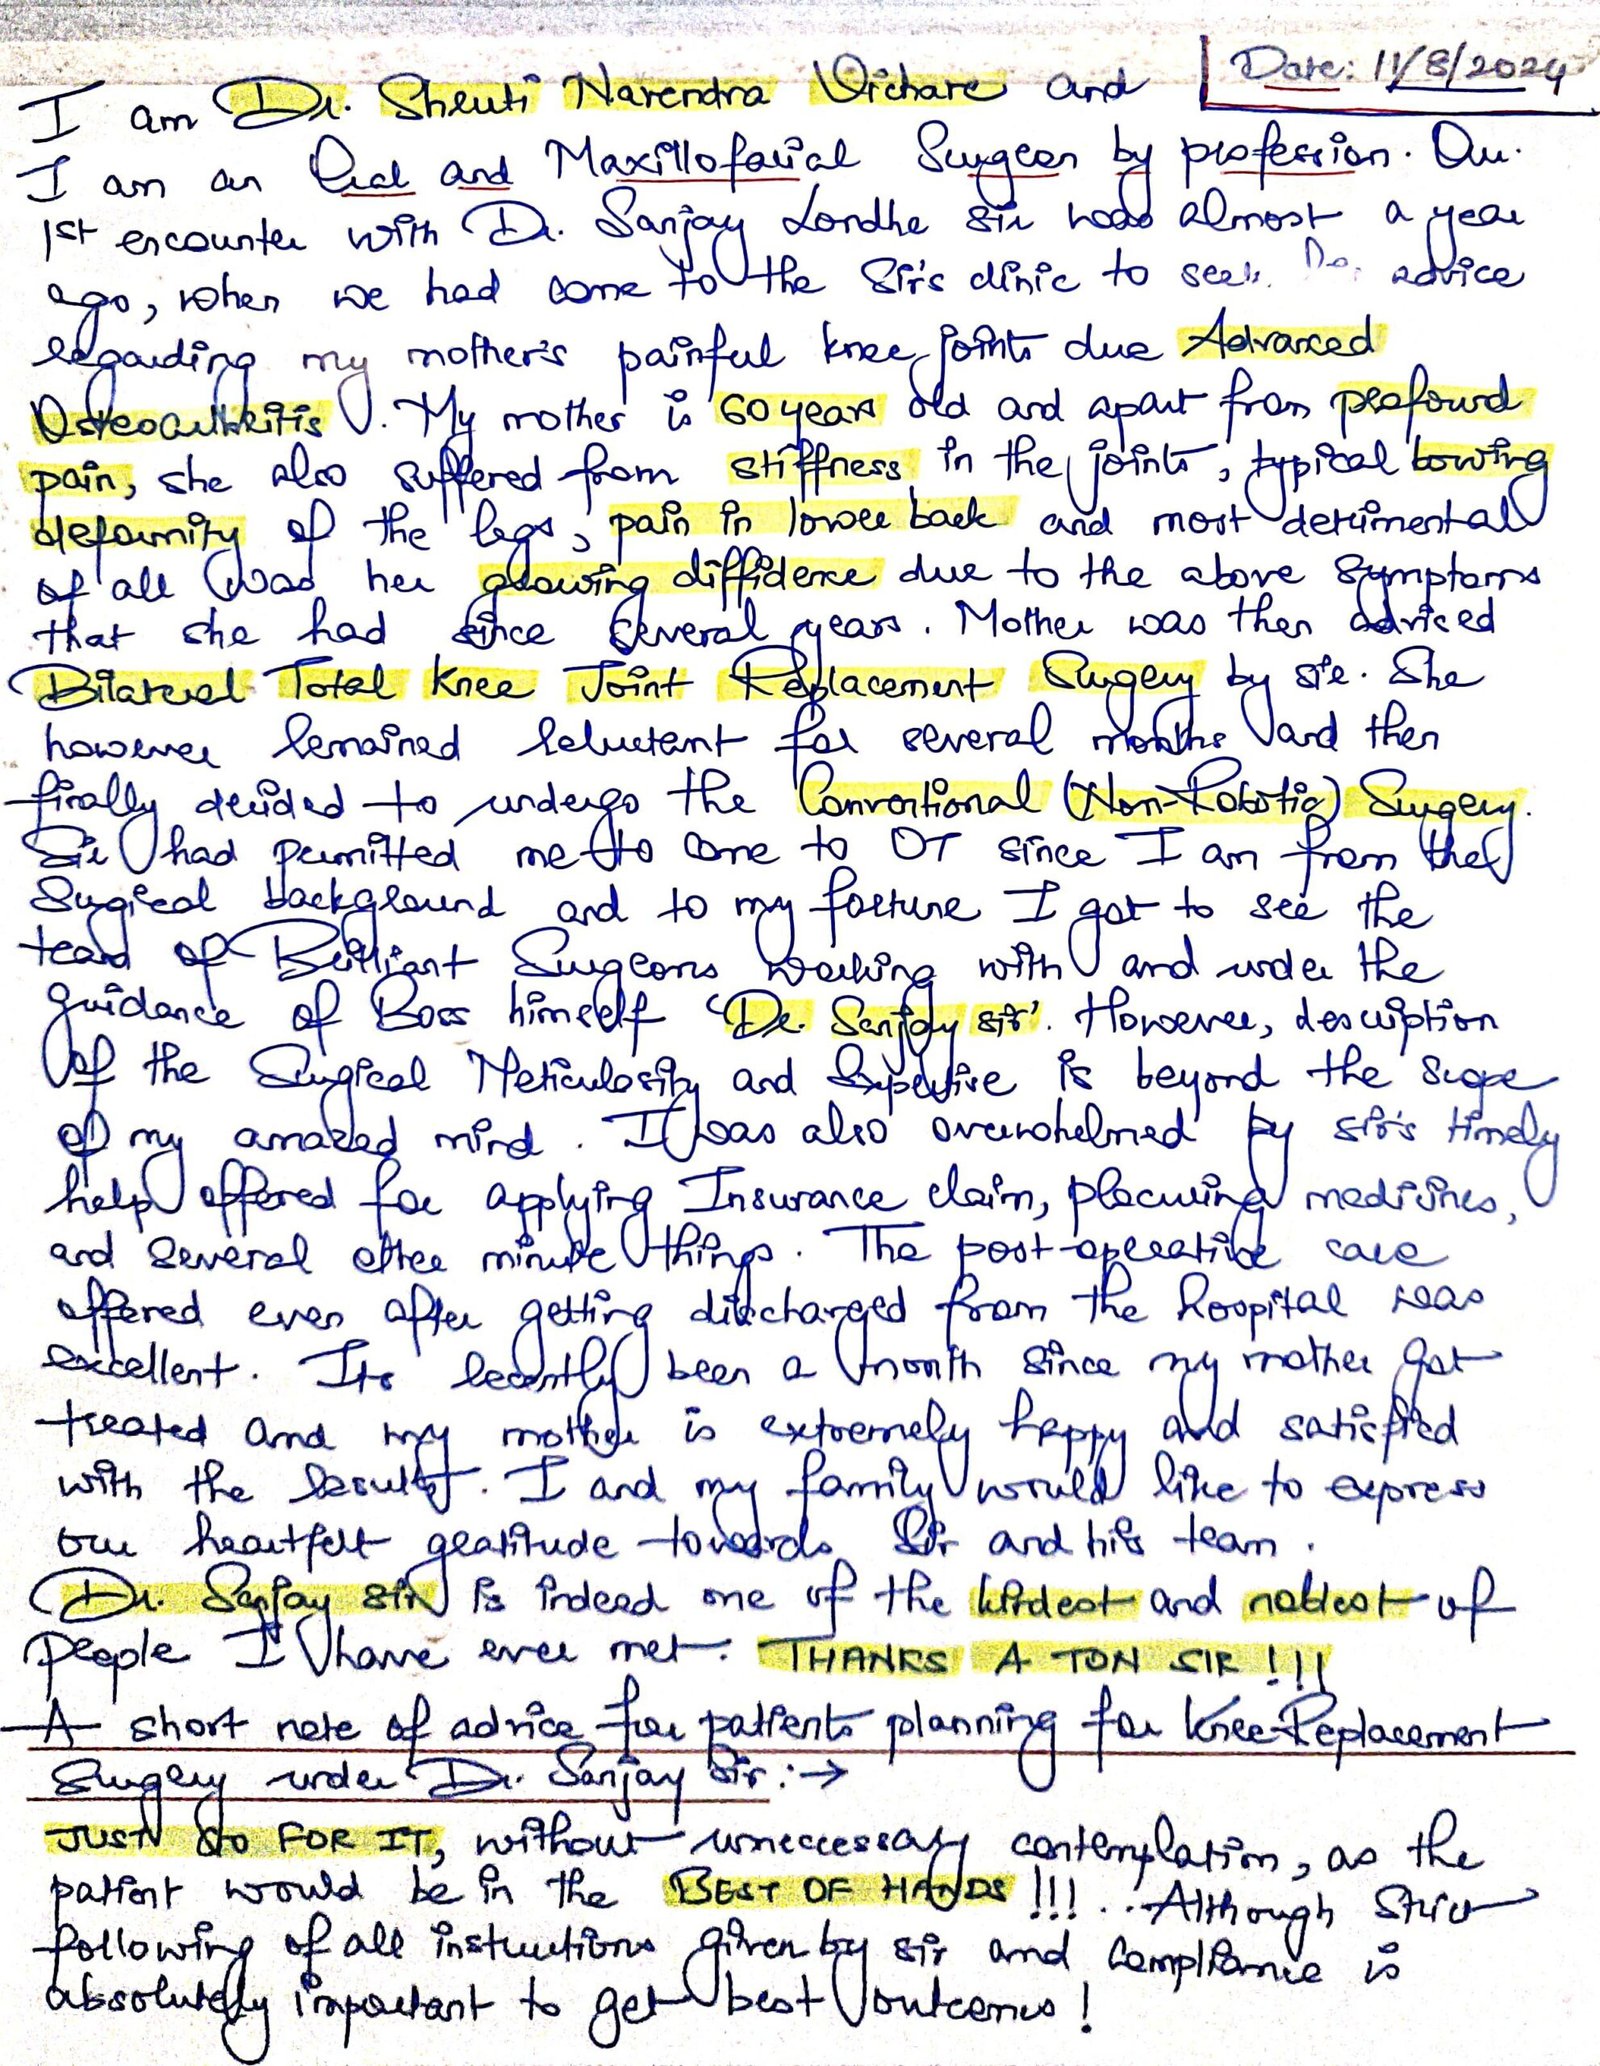 Date: 11/8/2024
I am Dr. Shruti Narendra Vichare and
I am an Oral and Maxillofacial Surgeon by profession. Our
1st encounter with Dr. Sanjay Londhe sir was almost a year
ago, when we had come to the Sir's clinic to seek advice
regarding my mother's painful knee joints due Advanced
Osteoarthritis. My mother is 60 years old and apart from profound
pain, she also suffered from stiffness in the joints, typical bowing
deformity of the legs, pain in lower back and most detrimental
of all was her growing diffidence due to the above symptoms
that she had since several years. Mother was then adviced
Bilateral Total Knee Joint Replacement Surgery by sir. She
however remained reluctant for several months and then
finally decided to undergo the Conventional (Non-Robotic) Surgery.
Sir had permitted me to come to OT since I am from the
Surgical background and to my fortune I got to see the
team of Brilliant Surgeons working with and under the
guidance of Boss himself 'Dr. Sanjay sir'. However, description
of the Surgical Meticulosity and Expertise is beyond the scope
of my amazed mind. I was also overwhelmed by sir's timely
help offered for applying Insurance claim, procuring medicines,
and several other minute things. The post-operative care
offered even after getting discharged from the hospital was
excellent. Its recently been a month since my mother got
treated and my mother is extremely happy and satisfied
with the results. I and my family would like to express
our heartfelt gratitude towards Sir and his team.
Dr. Sanjay sir is indeed one of the kindest and noblest of
people I have ever met. THANKS A TON SIR !!!
A short note of advice for patients planning for Knee Replacement
Surgery under Dr. Sanjay Sir :→
JUST GO FOR IT, without unneccessary contemplation, as the
patient would be in the BEST OF HANDS !!! .. Although Strict
following of all instructions given by sir and compliance is
absolutely important to get best outcomes !